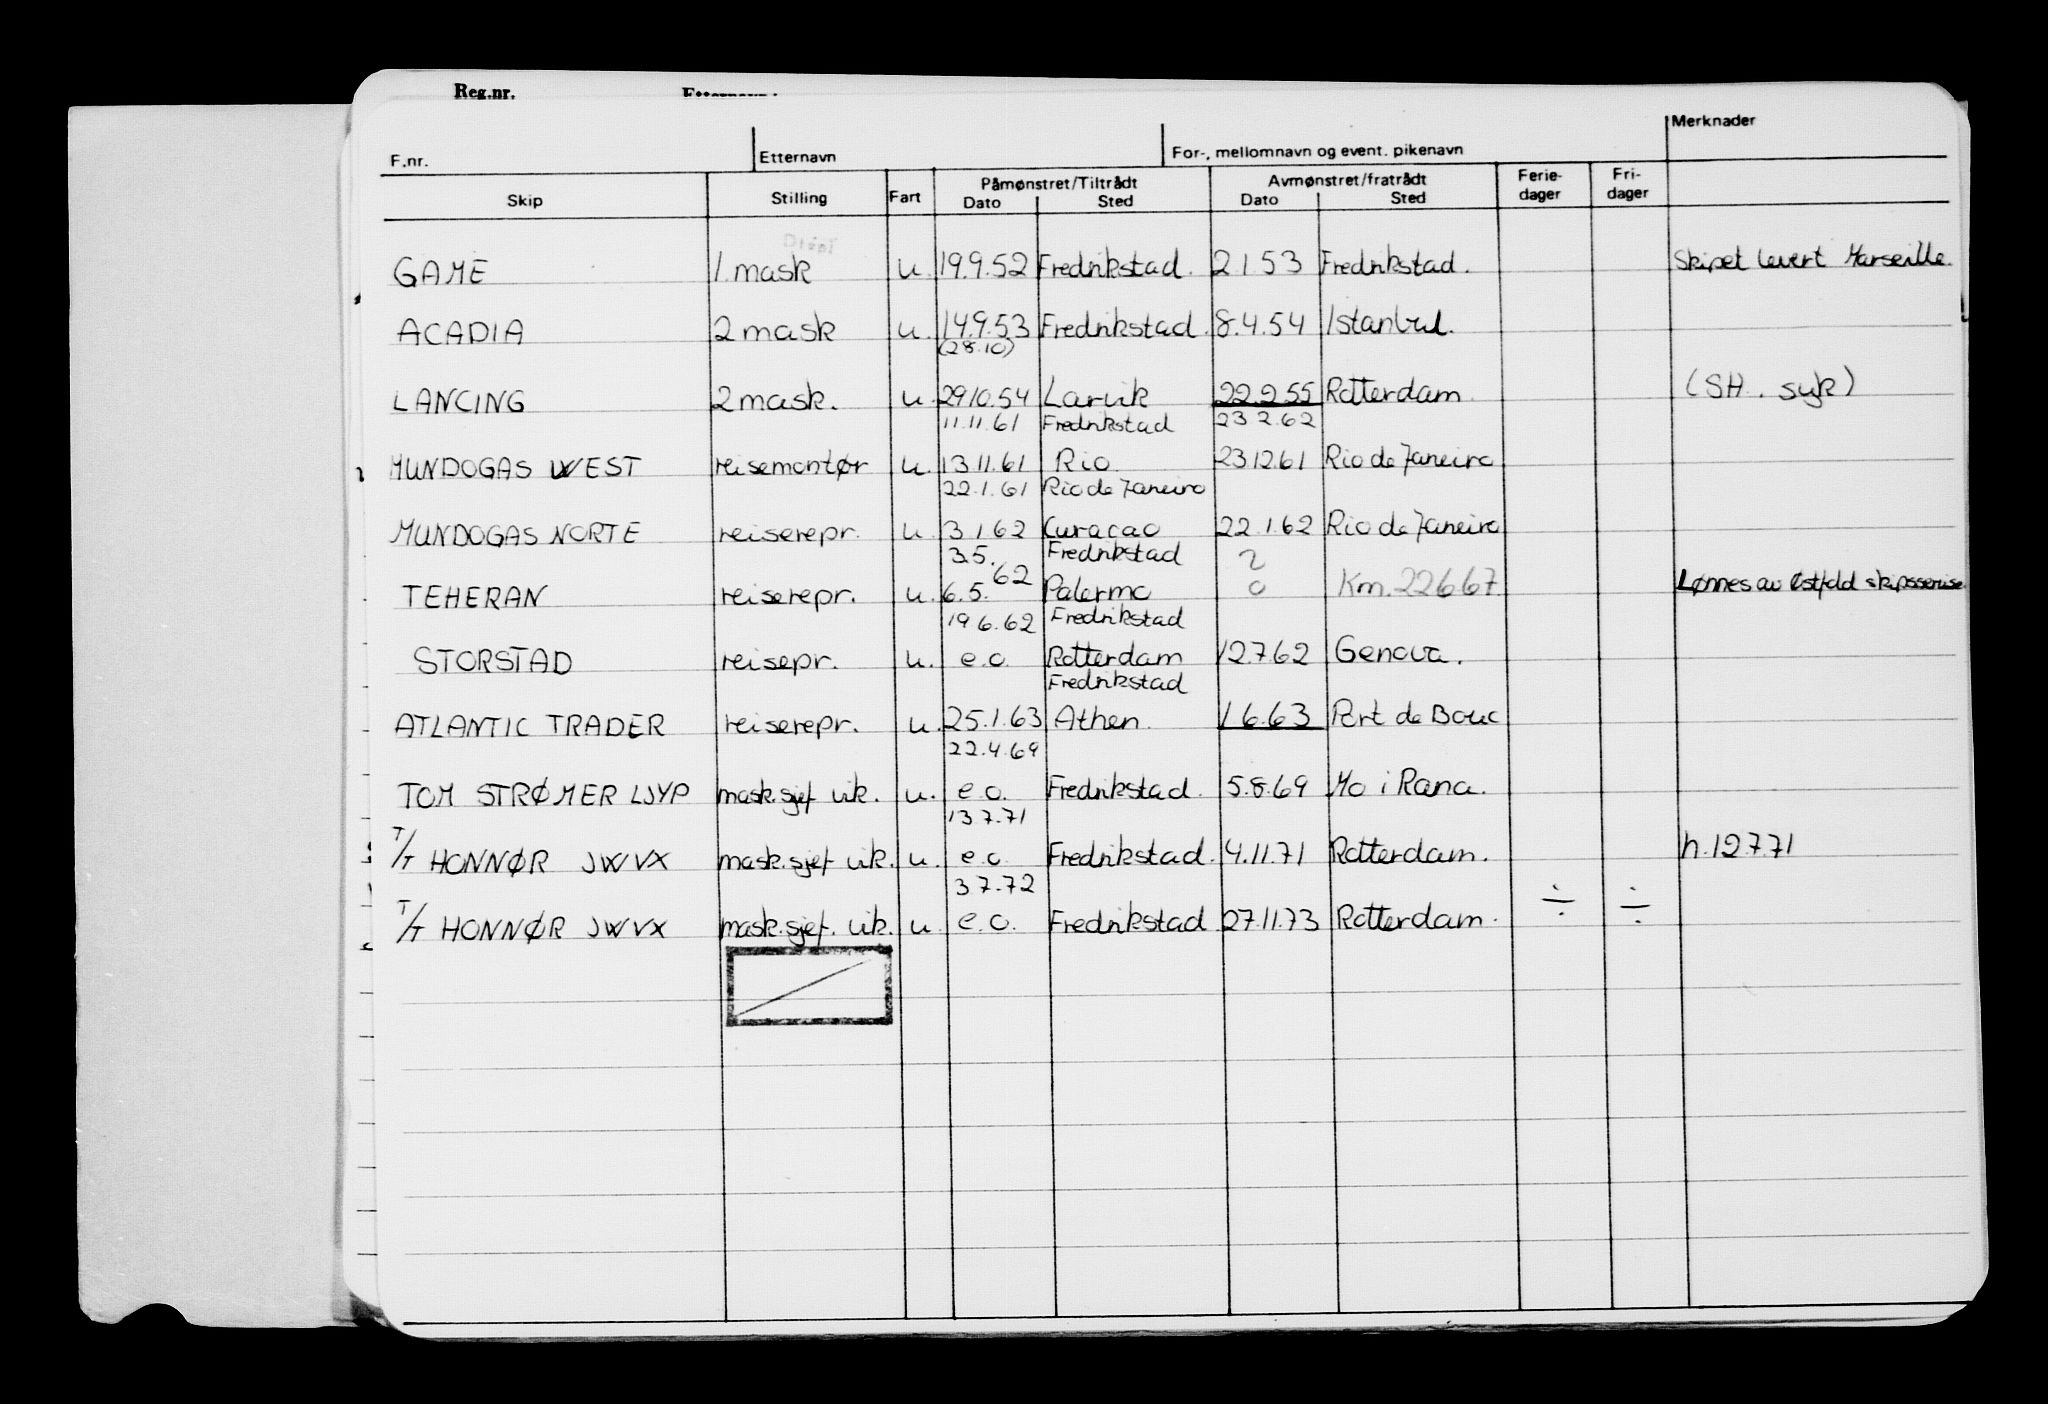 Reg.nr.
F.nr. Etternavn For-, mellomnavn og event. pikenavn Merknader
Skip Stilling Fart Påmønstret/Tiltrådt Dato Sted Avmønstret/fratrådt Dato Sted Ferie-dager Fri-dager
GAME 1. mask u. 19.9.52 Fredrikstad. 2.1.53 Fredrikstad. Skipet levert Marseille.
ACADIA 2 mask u. 14.9.53 Fredrikstad. 8.4.54 Istanbul.
(28.10)
LANCING 2 mask. u. 29.10.54 Larvik 22.2.55 Rotterdam. (SH. syk)
11.11.61 Fredrikstad 23.2.62
MUNDOGAS WEST reisemontør u. 13.11.61 Rio. 23.12.61 Rio de Janeiro
22.1.61 Rio de Janeiro
MUNDOGAS NORTE reiserepr. u. 3.1.62 Curacao 22.1.62 Rio de Janeiro
3.5. Fredrikstad
TEHERAN reiserepr. u. 6.5. 62 Palermo Km. 22667. Lønnes av Østfold
19.6.62 Fredrikstad
STORSTAD reisepr. u. e.o. Rotterdam 12.7.62 Genova.
Fredrikstad
ATLANTIC TRADER reiserepr. u. 25.1.63 Athen. 1.6.63 Port de Bouc
22.4.69
TOM STRØMER LJYP mask.sjef vik. u. e.o. Fredrikstad. 5.8.69 Mo i Rana.
13.7.71
T/T HONNØR JWVX mask.sjef vik. u. e.o Fredrikstad. 4.11.71 Rotterdam. h.12.7.71
3.7.72
T/T HONNØR JWVX mask.sjef. vik. u. e.o. Fredrikstad 27.11.73 Rotterdam. ÷ ÷